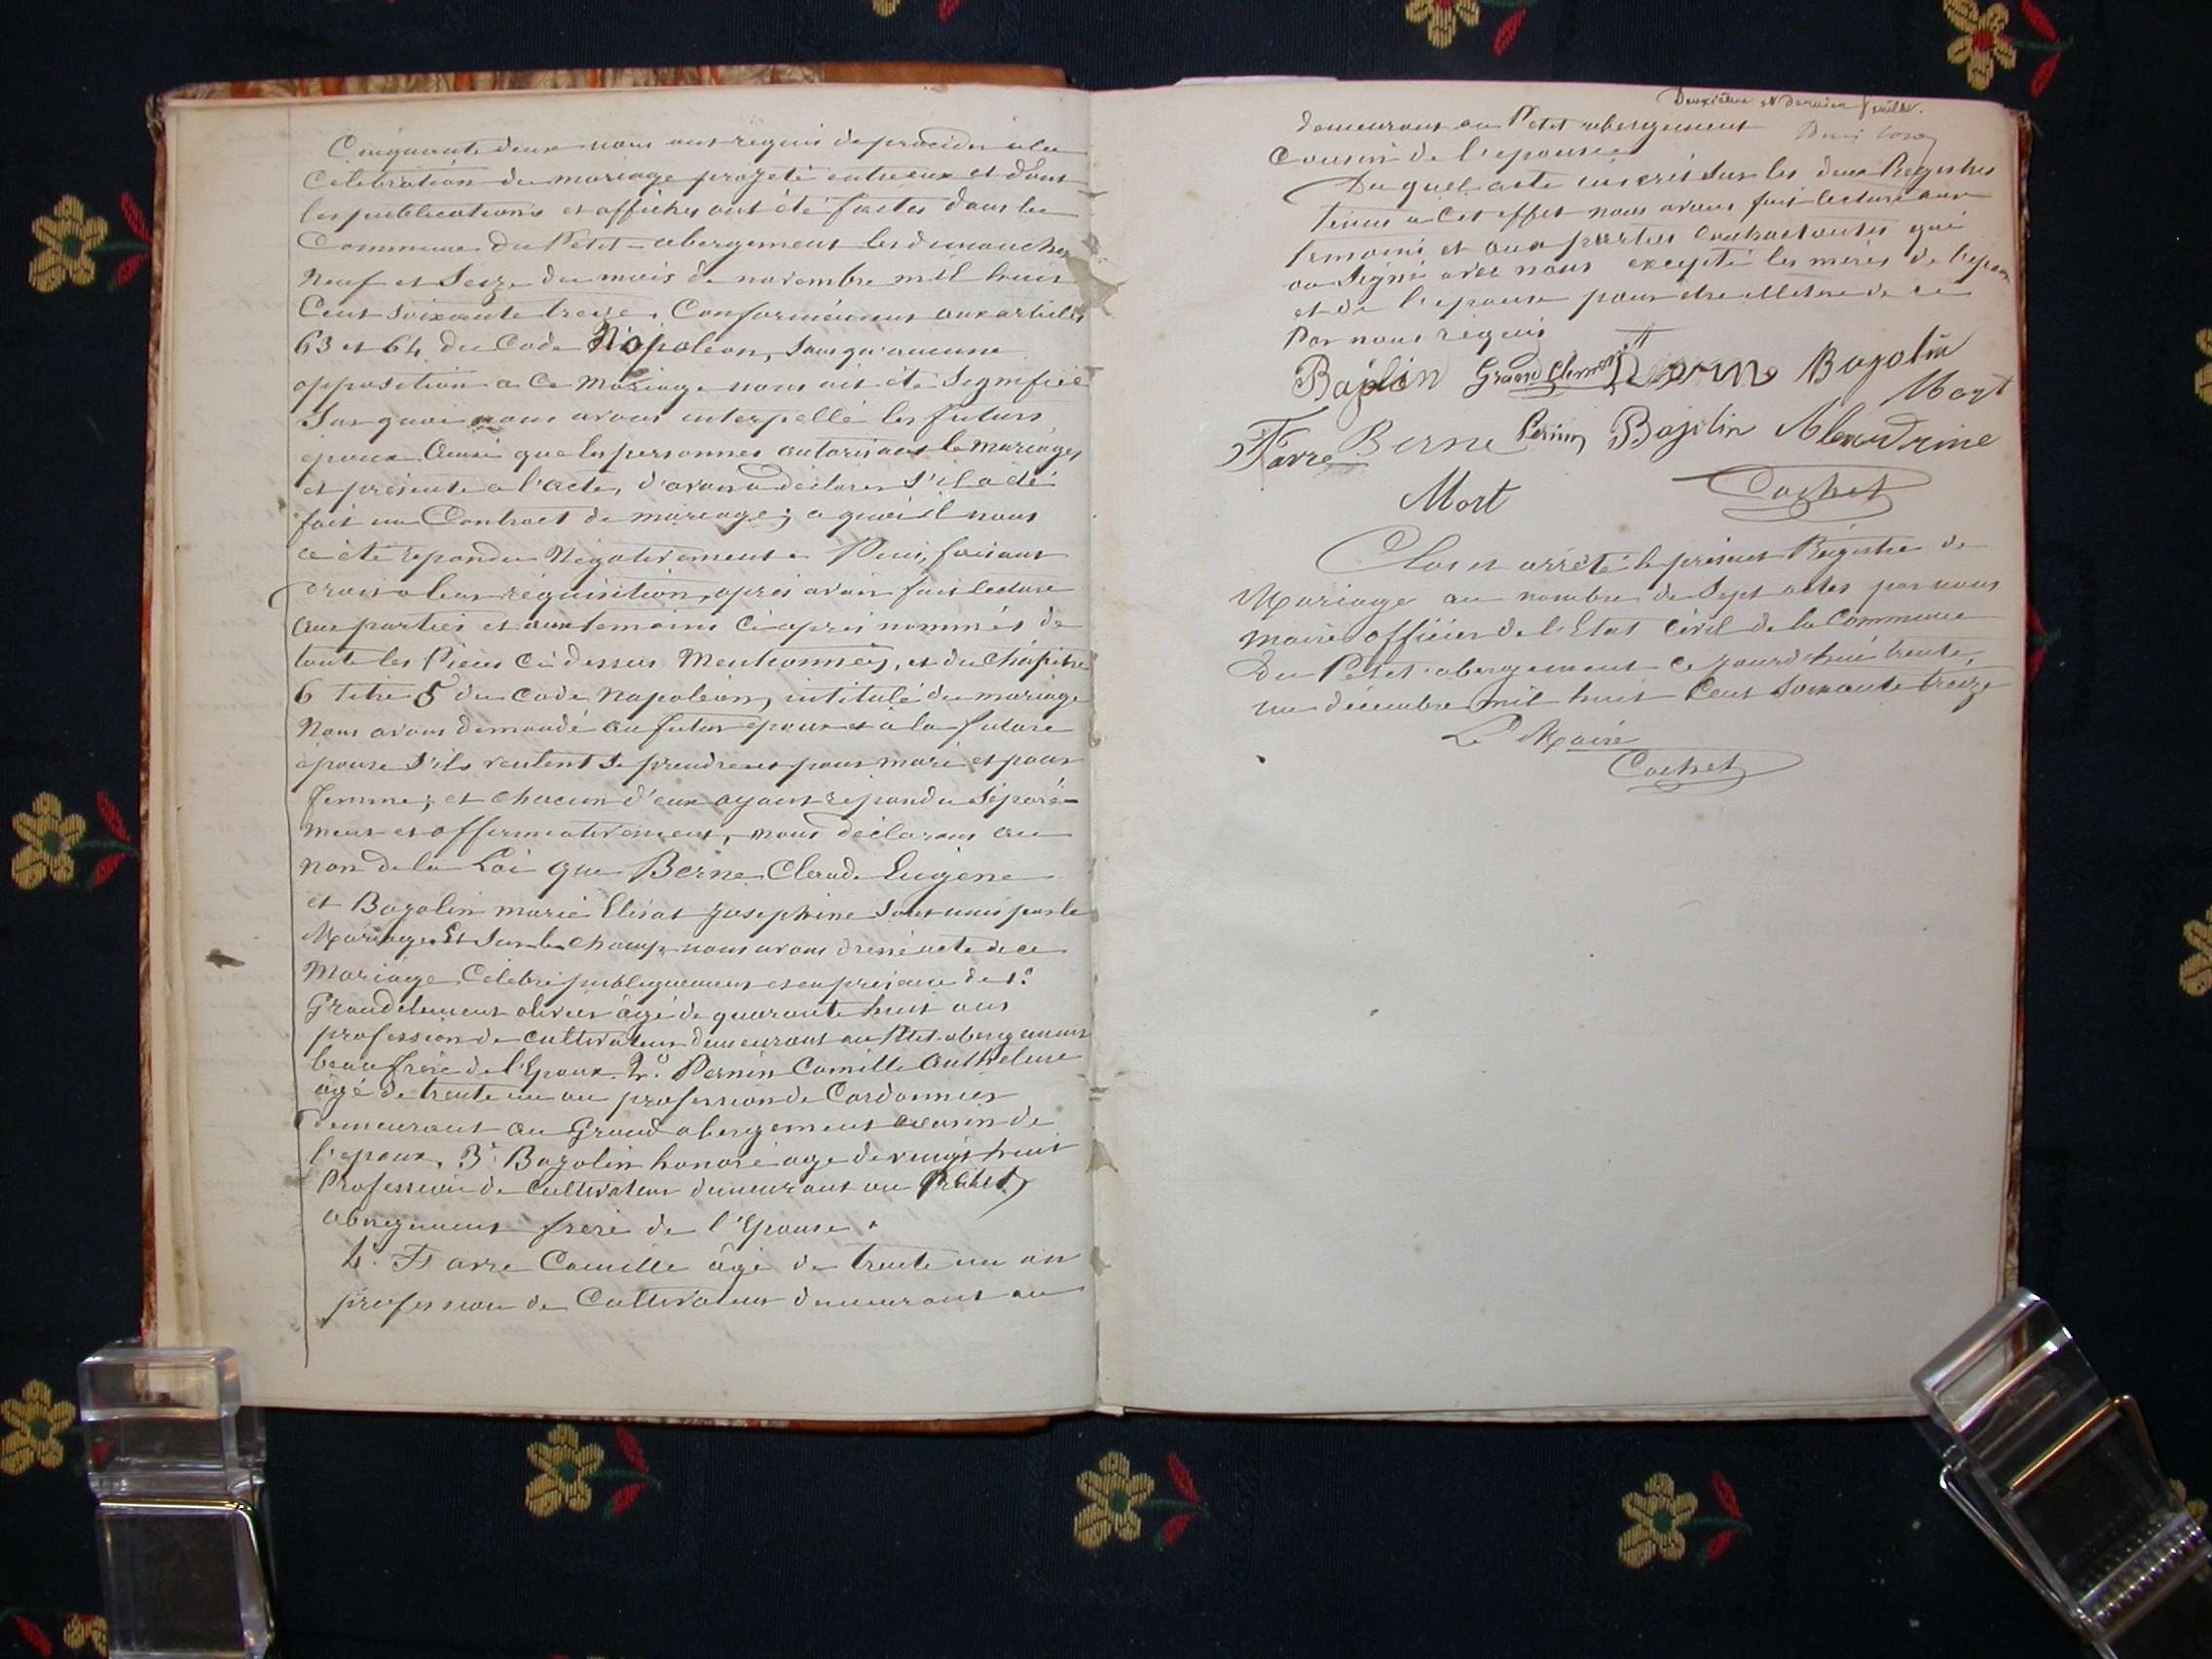 Cinquante deux nous ont requis de procéder a la
Célébration du mariage projeté entre eux et dont
les publications et affiches ont été faites dans la
Commune du Petit-abergement les dimanches
neuf et Seize du mois de novembre mil huit
Cent Soixante treize, Conformément aux articles
63 et 64 du Code Napoléon, sans qu'aucune
opposition a Ce mariage nous ait été Signifiée
Sur quoi nous avons interpellé les futurs
époux Ainsi que les personnes autorisant le mariage,
et présente a l'acte, d'avoir a déclarer S'il a été
fait un Contract de mariage; a quoi il nous
a été répondu Négativement. Puis, faisant
droit a leur réquisition, après avoir fait lecture
aux parties et aux témoins Ci après nommés de
toute les Pièces Ci dessus Mentionnées, et du Chapitre
6 titre 5 du Code Napoléon, intitulé du mariage
Nous avons demandé au futur époux et à la future
épouse S'ils veulent se prendre pour mari et pour
femme; et chacun d'eux ayant répondu Séparé-
ment et affirmativement, nous déclarons au
nom de la Loi que Berne Claude Eugène
et Bozolin marie Elisat Josephine Sont unis par le
Mariage. Et Sur le champ nous avons dressé acte de ce
Mariage Célébré publiquement et en présence de 1°
Grandclement olivier âgé de quarante huit ans
profession de cultivateur demeurant au Petit-abergement
beau frère de l'Epoux. 2° Pernin Camille Anthelme
âgé de trente un an profession de Cordonnier
demeurant au Grand abergement cousin de
l'epoux, 3° Bozolin honoré age de vingt huit
Profession de Cultivateur demeurant au Petit
abergement frère de l'Epouse.
4. Favre Camille âgé de trente un an
profession de Cultivateur demeurant au
Deuxième et dernier feuillet.
demeurant au Petit abergement
Cousin de l'epouse
Du quel acte inscrit Sur les deux Registres
tenus a Cet effet nous avons fait lecture aux
temoins et aux parties Contractantes qui
on Signé avec nous excepté les mères de l'epoux
et de l'epouse pour etre illétrée de ce
Par nous requis
Bajolin Grand Clement Berne Bozolin
Mort
Favre Berne Pernin Bajolin Alexandrine
Mort Cochet
Clos et arrêté le présent Régistre de
Mariage au nombre de Sept actes par nous
maire officier de l'Etat Civil de la Commune
Du Petit-abergement Ce jourd'hui trente,
un décembre mil huit Cent Soixante treize
Le Maire
Cochet